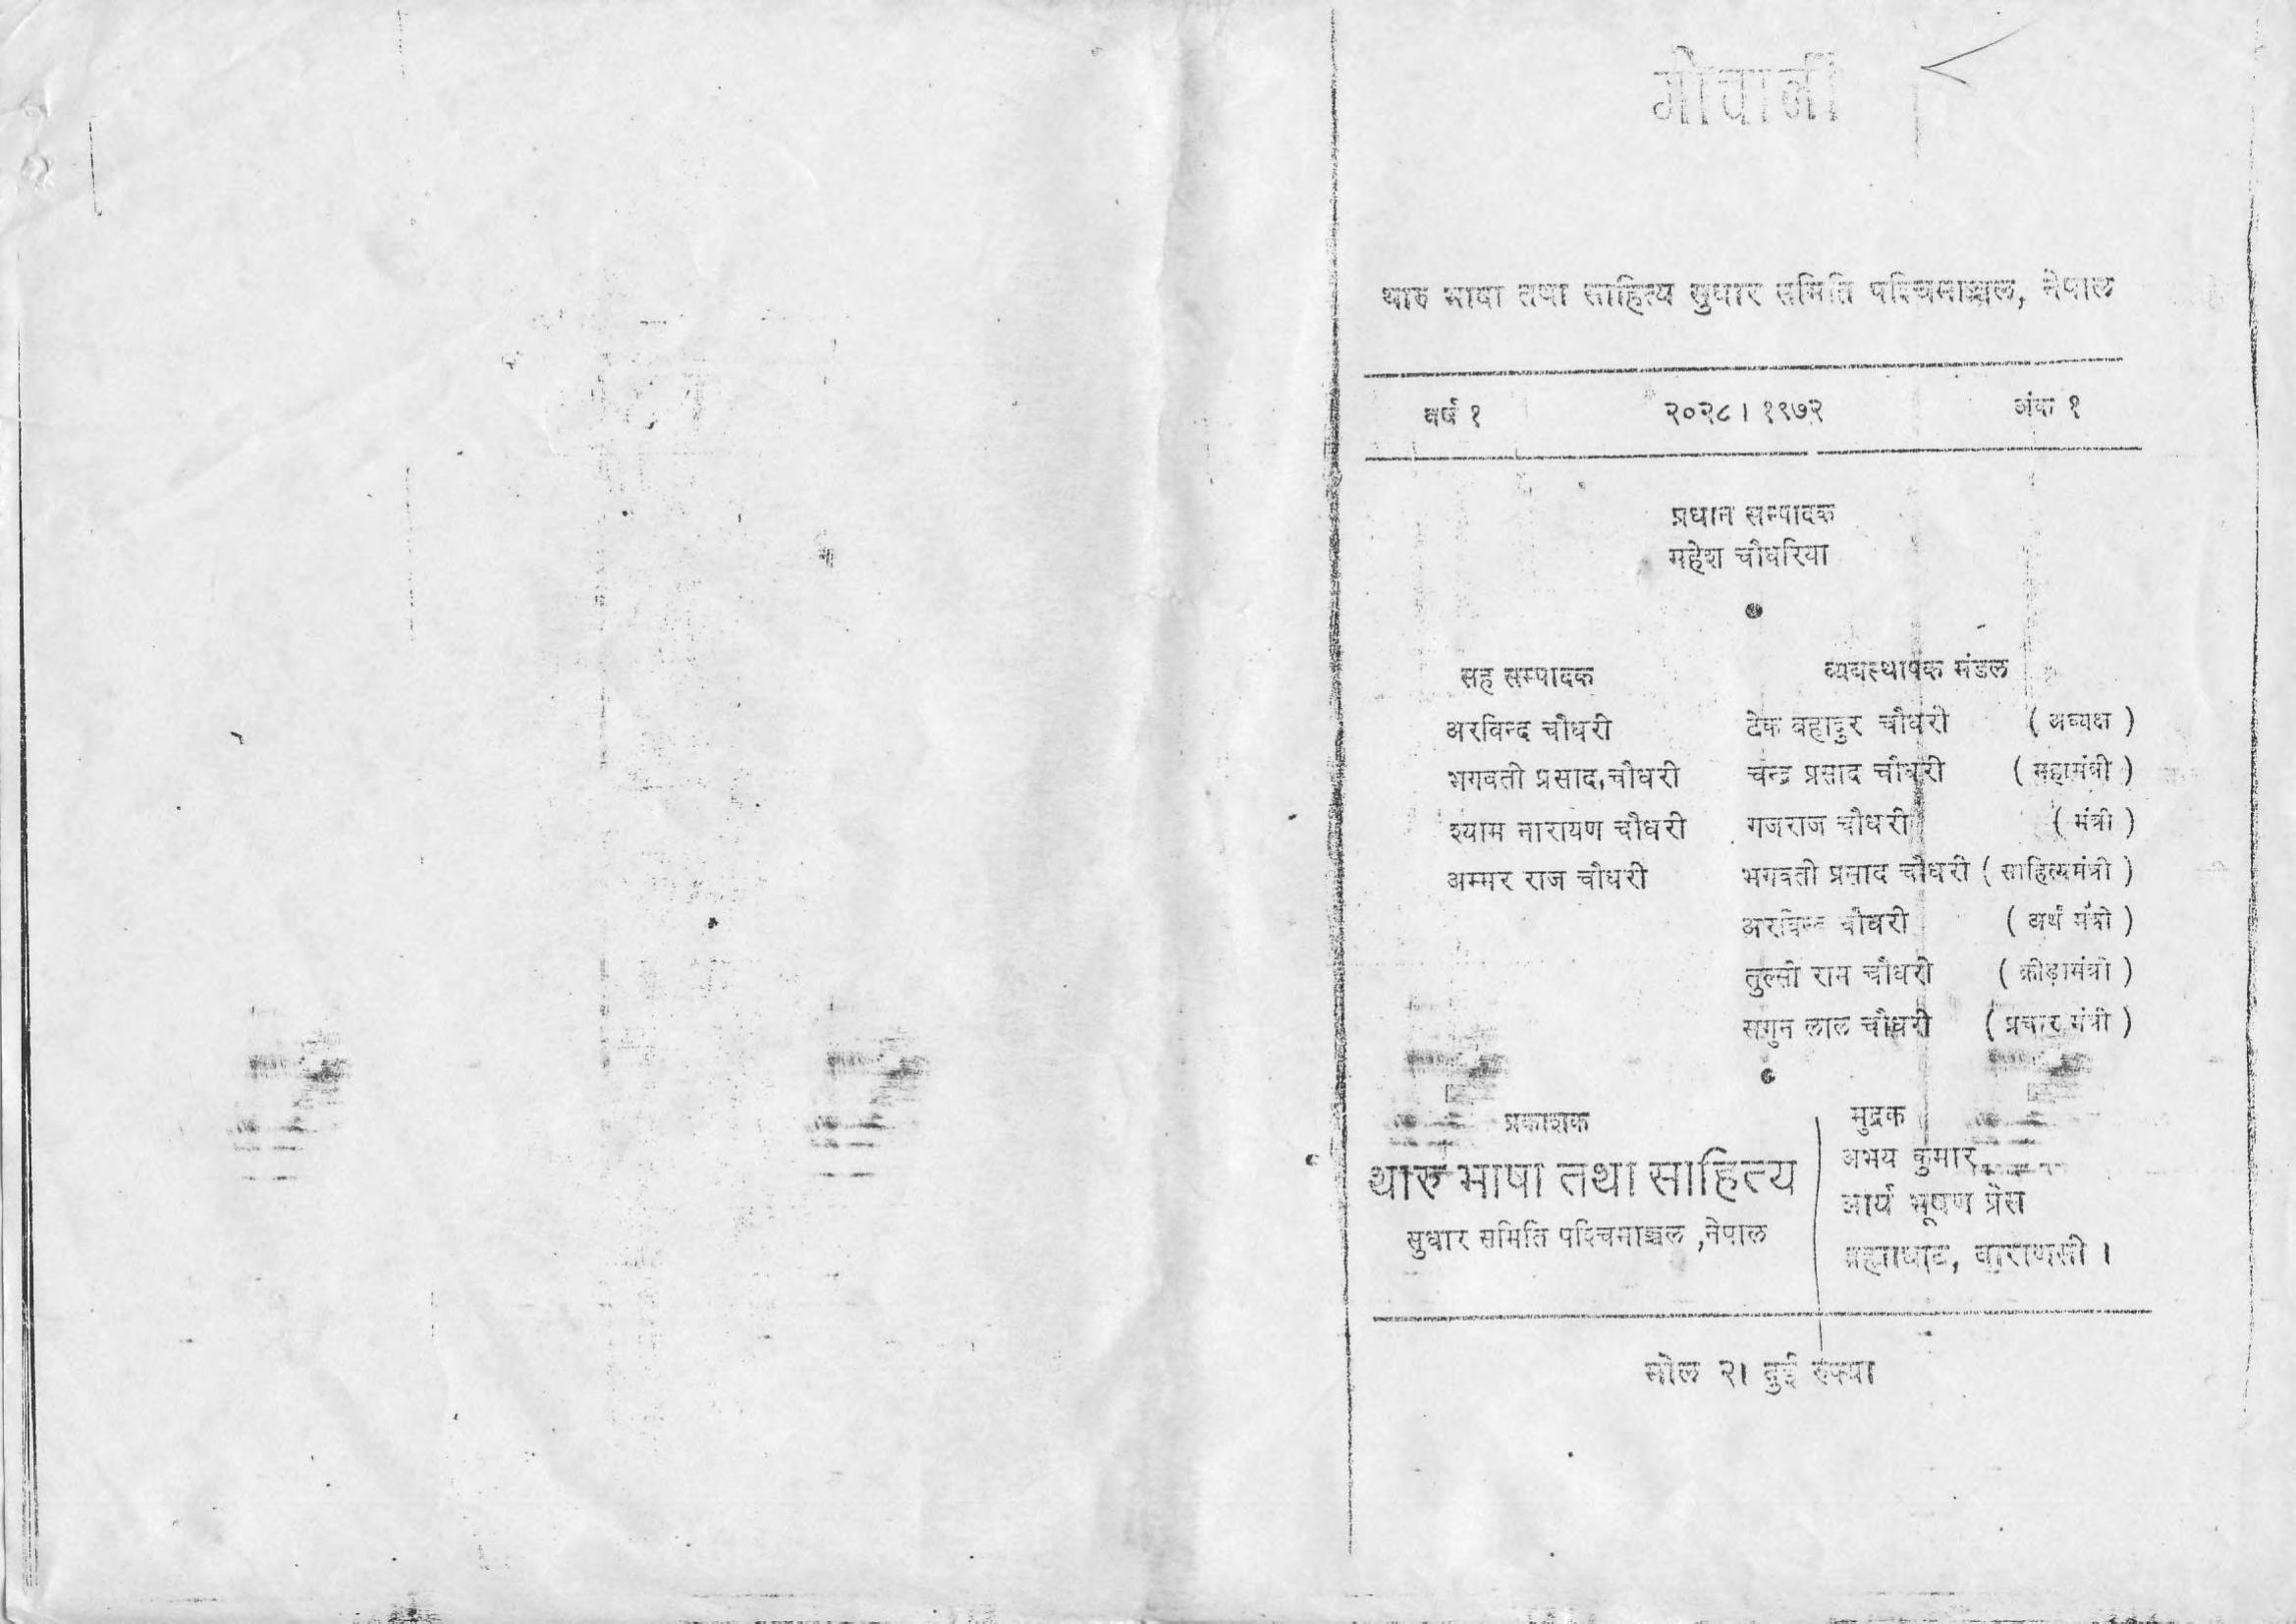 गोचाली
थारु भाषा तथा साहित्य सुधार समिति पश्चिमाञ्चल, नेपाल
वर्ष १ २०२८ । १९७२ अंक १
प्रधान सम्पादक
महेश चौधरिया
सह सम्पादक व्यवस्थापक मंडल
अरविन्द चौधरी टेक बहादुर चौधरी ( अध्यक्ष )
भगवती प्रसाद चौधरी चन्द्र प्रसाद चौधरी ( महामंत्री )
श्याम नारायण चौधरी गजराज चौधरी ( मंत्री )
अम्मर राज चौधरी भगवती प्रसाद चौधरी ( साहित्यमंत्री )
अरविन्द चौधरी ( अर्थ मंत्री )
तुल्सी राम चौधरी ( क्रीड़ामंत्री )
सगुन लाल चौधरी ( प्रचार मंत्री )
प्रकाशक
थारु भाषा तथा साहित्य
सुधार समिति पश्चिमाञ्चल ,नेपाल
मुद्रक
अभय कुमार
आर्य भूषण प्रेस
ब्रह्माघाट, वाराणसी ।
मोल २। दुई रुपया